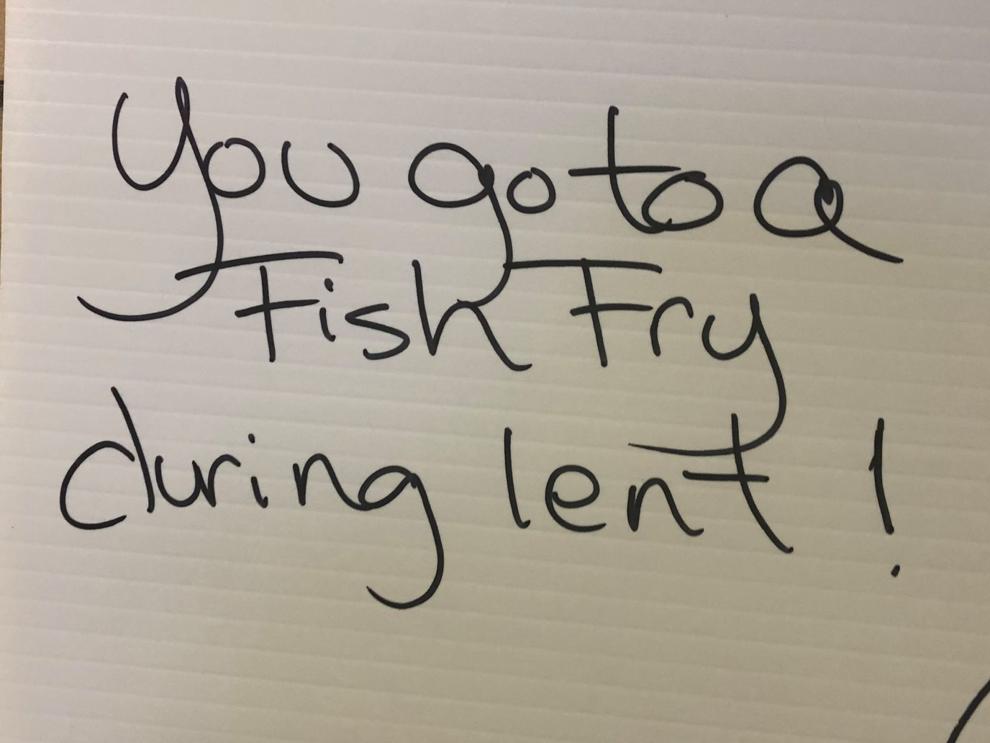 You go to a
Fish Fry
during lent !